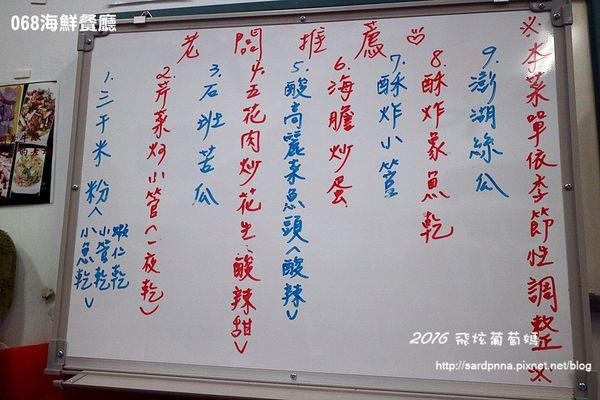 068海鮮餐廳
老闆推薦♡
※本菜單依季節性調整※
9.澎湖絲瓜
8.酥炸象魚乾
7.酥炸小管
6.海膽炒蛋
5.酸高麗菜魚頭(酸辣)
4.五花肉炒花生(酸辣甜)
3.石班苦瓜
2.芹菜炒小管(一夜乾)
1.三干米粉(蝦仁乾 小管乾 小魚乾)
2016 飛炫葡萄媽
http://sardpnna.pixnet.net/blog